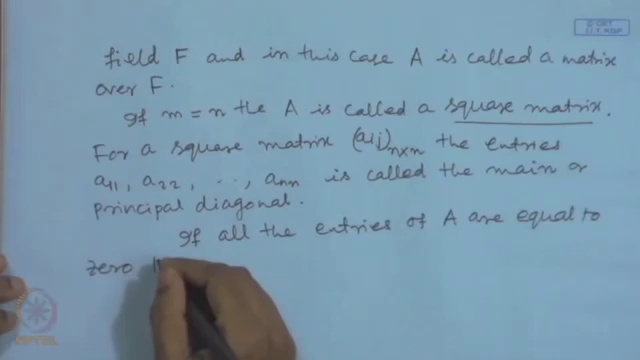 © CET
I.I.T. KGP
field F and in this case A is called a matrix
over F.
If m = n the A is called a square matrix.
For a square matrix (aij)n×n the entries
a11, a22, . . ., ann is called the main or
principal diagonal.
If all the entries of A are equal to
zero
NPTEL